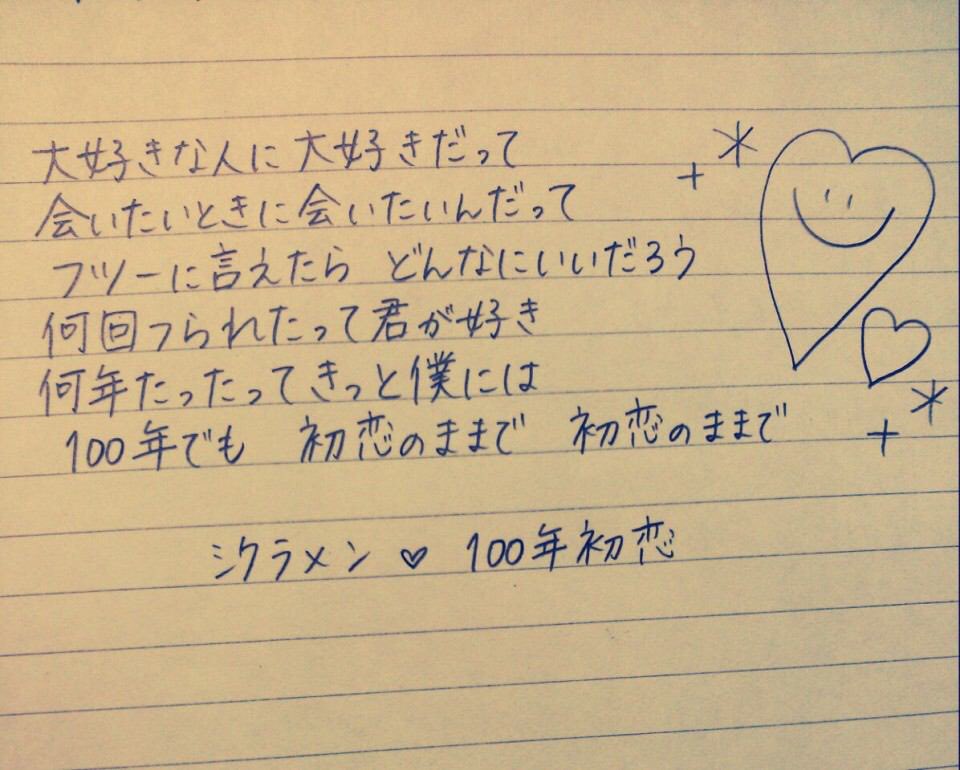 大好きな人に大好きだって
会いたいときに会いたいんだって
フツーに言えたら どんなにいいだろう
何回フられたって君が好き
何年たったってきっと僕には
100年でも 初恋のままで 初恋のままで
シクラメン♡ 100年初恋